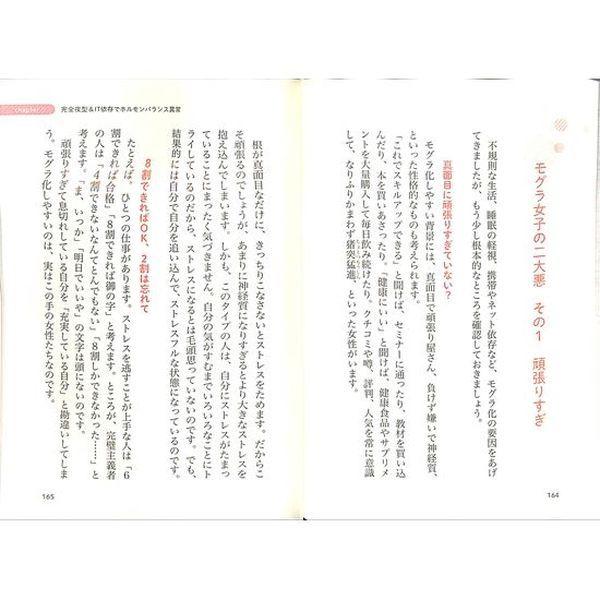 モグラ女子の二大悪　その1　頑張りすぎ
不規則な生活、睡眠の軽視、携帯やネット依存など、モグラ化の要因をあげ
てきましたが、もう少し根本的なところを確認しておきましょう。
真面目に頑張りすぎていない？
モグラ化しやすい背景には、真面目で頑張り屋さん、負けず嫌いで神経質、
といった性格的なものも考えられます。
「これでスキルアップできる」と聞けば、セミナーに通ったり、教材を買い込
んだり、本を買いあさったり。「健康にいい」と聞けば、健康食品やサプリメ
ントを大量購入して毎日飲み続けたり。クチコミや噂、評判、人気を常に意識
して、なりふりかまわず猪突猛進、といった女性がいます。
164
chapter
完全夜型＆IT依存でホルモンバランス異常
根が真面目なだけに、きっちりこなさないとストレスをためます。だからこ
そ頑張るのでしょうが、あまりに神経質になりすぎるとより大きなストレスを
抱え込んでしまいます。しかも、このタイプの人は、自分にストレスがたまっ
ていることにまったく気づきません。自分の気がすむまでいろいろなことにト
ライしているのだから、ストレスになるとは毛頭思っていないのです。でも、
結果的には自分で自分を追い込んで、ストレスフルな状態になっているのです。
8割できればOK、2割は忘れて
たとえば、ひとつの仕事があります。ストレスを逃すことが上手な人は「6
割できれば合格」「8割できれば御の字」と考えます。ところが、完璧主義者
の人は「4割できないなんてとんでもない」「8割しかできなかった……」と
考えます。「ま、いっか」「明日でいいや」の文字は頭にないのです。
頑張りすぎて息切れしている自分を「充実している自分」と勘違いしてしま
う。モグラ化しやすいのは、実はこの手の女性たちなのです。
165